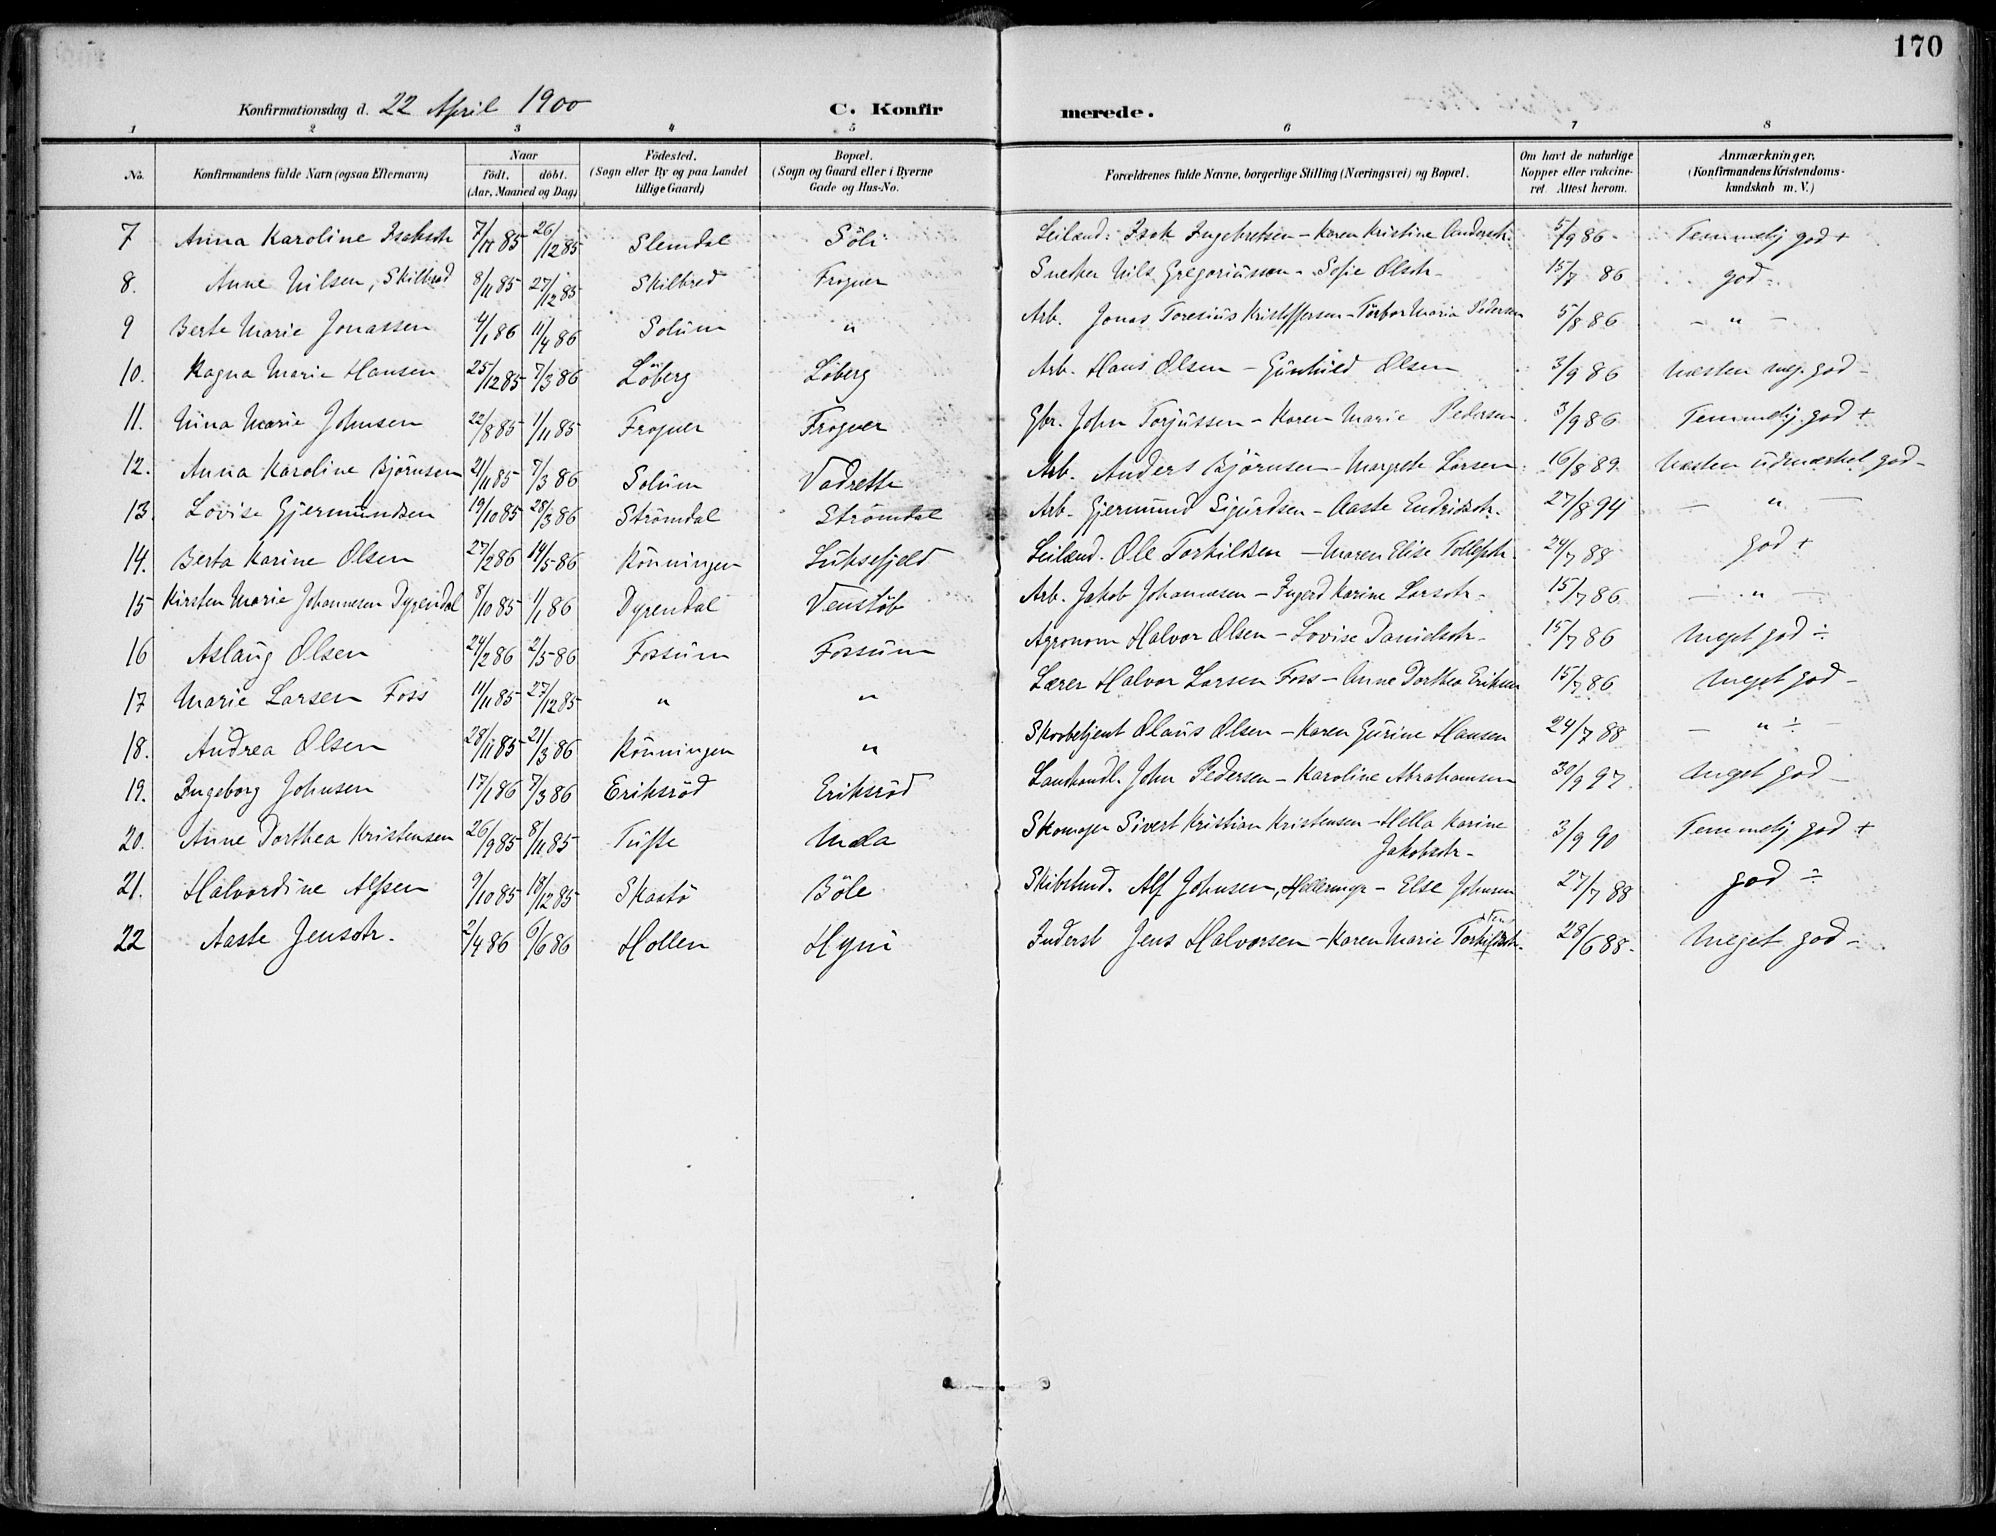 170
Konfirmationsdag d. 22 April 1900 C. Konfirmerede.
1 2 3 4 5 6 7 8
No. Konfirmandens fulde Navn (ogsaa Efternavn) Naar født. døbt. (Aar, Maaned og Dag) Födested. (Sogn eller By og paa Landet tillige Gaard) Bopæl. (Sogn og Gaard eller i Byerne Gade og Hus-No. Forældrenes fulde Navne, borgerlige Stilling (Næringsvei) og Bopæl. Om havt de naturlige Kopper eller vakcineret. Attest herom. Anmærkninger. (Konfirmandens Kristendomskundskab m. V.)
7 Anna Karoline Isaksdtr 7/11 85 26/12 85 Slemdal Söli Leilænd. Isak Ingebretsen - Karen Kristine Andersdtr. 5/9 86 Temmelig god +
8. Anne Nilsen, Skilbred 8/11 85 27/12 85 Skilbred Frogner Snecker Nils Gregoriussen - Sofie Olsdtr - 15/7 86 god -
9 Berte Marie Jonassen 4/1 86 11/4 86 Solum " Arb. Jonas Toresius Kristoffersen - Torbor Maria Pedersen 5/8 86 - " -
10. Ragna Marie Hansen 25/12 85 7/3 86 Löberg Löberg Arb. Hans Olsen - Gunhild Olsen 3/9 86 Næsten meg. god -
11. Nina Marie Johnsen 22/8 85 1/11 85 Frogner Frogner Gbr. John Torjussen - Karen Marie Pedersen 3/9 86 Temmelig god +
12. Anna Karoline Björnsen 21/11 85 7/3 86 Solum Vadrette Arb. Anders Björnsen - Margrete Larsen 16/8 89 Næsten udmærket god -
13. Lovise Gjermundsen 19/10 85 28/3 86 Strömdal Strömdal Arb. Gjermund Sigurdsen - Aaste Endridsdtr. 27/8 94 - " -
14. Berta Karine Olsen 27/2 86 14/5 86 Rönningen Luksefjeld Leilænd. Ole Torkildsen - Maren Elise Tollefsdtr. 24/7 88 god +
15 Kirsten Marie Johannesen Dyrendal 8/10 85 1/1 86 Dyrendal Venstöb Arb. Jakob Johannesen - Ingerd Karine Larsdtr - 15/7 86 - " -
16 Aslaug Olsen 24/2 86 2/5 86 Fossum Fossum Agronom Halvor Olsen - Lovise Danielsdtr - 15/7 86 Meget god ÷
17 Marie Larsen Foss 11/11 85 27/12 85 " " Lærer Halvor Larsen Foss - Anne Dorthea Eriksen 15/7 86 Meget god -
18. Andrea Olsen 28/11 85 21/3 86 Rönningen " Skovbetjent Olaus Olsen - Karen Gurine Hansen 24/7 88 - " ÷ -
19. Ingeborg Johnsen 17/1 86 7/3 86 Eriksröd Eriksröd Landhandl. John Pedersen - Karoline Abrahamsen 30/9 97 Meget god -
20. Anne Dorthea Kristensen 26/9 85 8/11 85 Tufte Mæla Skomager Sivert Kristian Kristensen - Hella Karine Jakobsdtr - 3/9 90 Temmelig god +
21. Halvordine Alfsen 9/10 85 18/12 85 Skaatö Böle Skibstmd. Alf Johnsen, Hellermyr - Else Johnsen 27/7 88 god ÷
22 Aaste Jensdtr. 2/4 86 6/6 86 Hollen Hyni Inderst Jens Halvorsen - Karen Marie 28/6 88. Meget god -